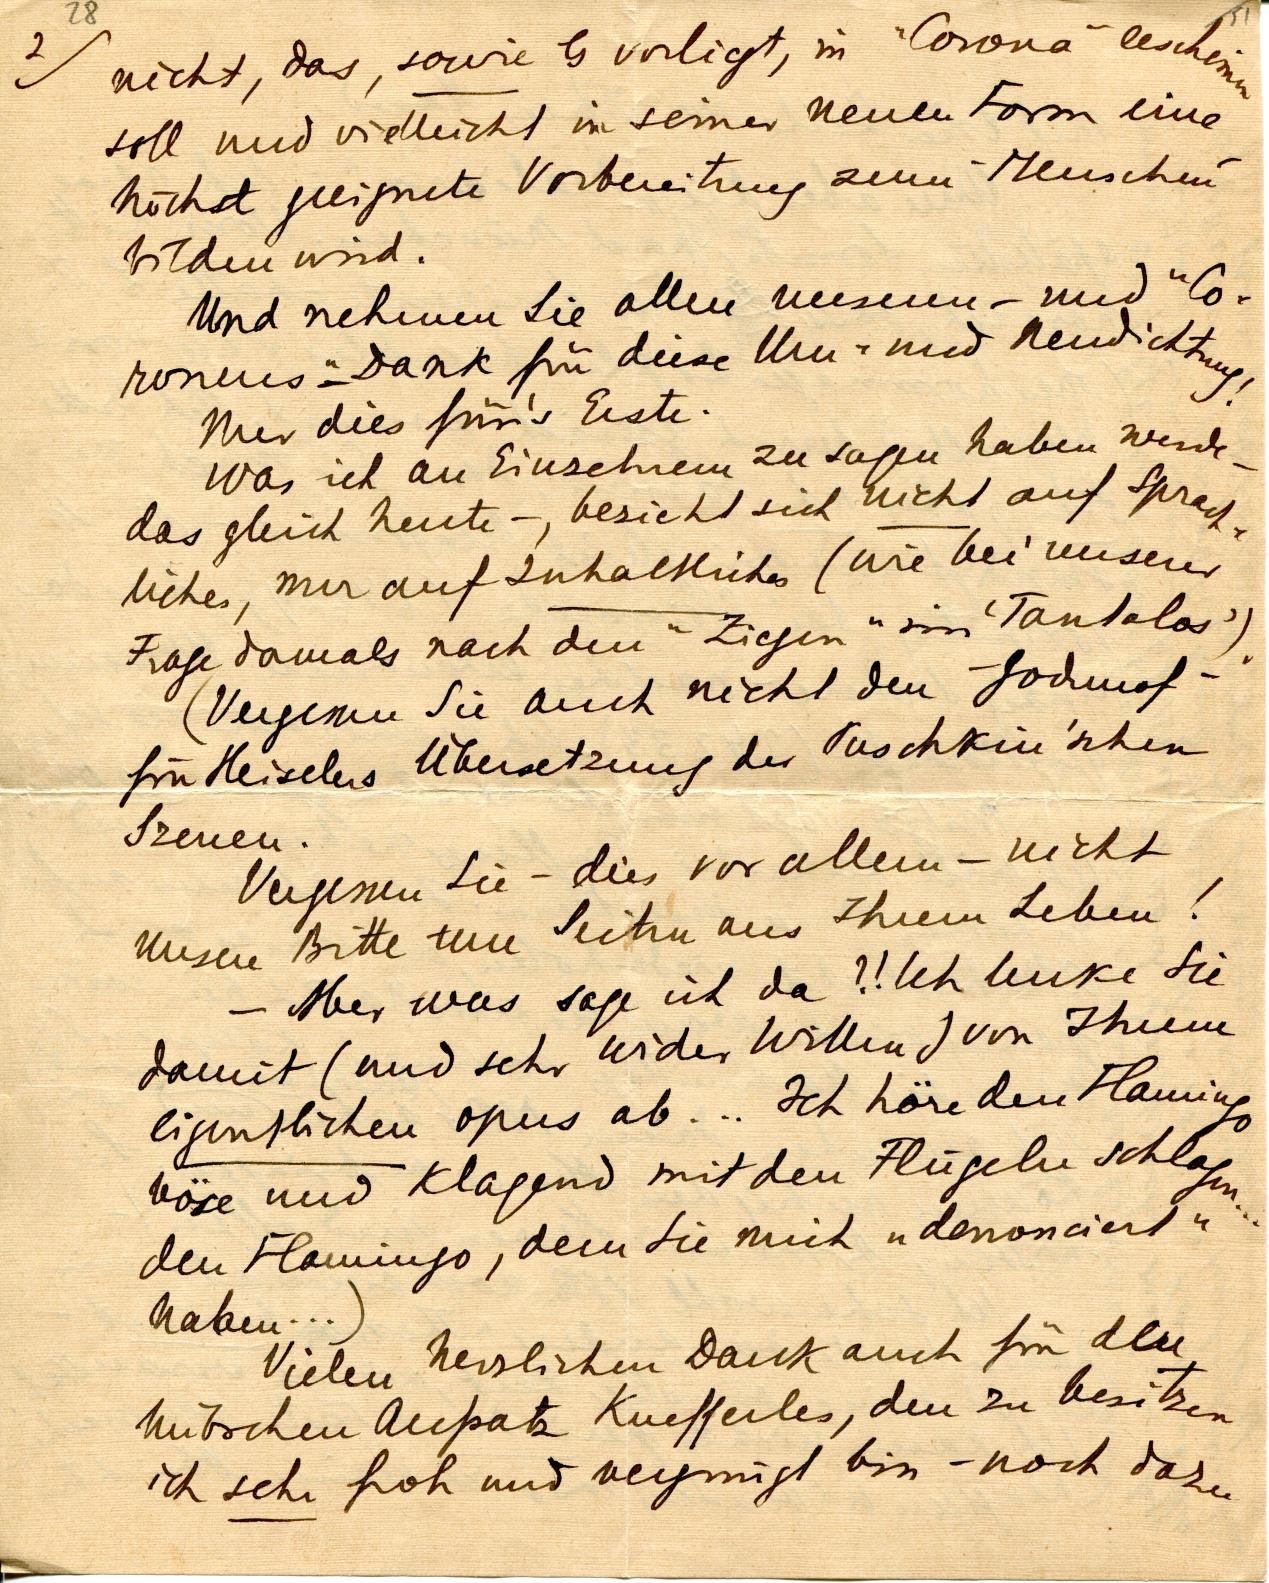 28
2/
nicht, das, sowie Es vorliegt, in "Corona" erscheinen
soll und vielleicht in seiner neuen Form eine
höchst geeignete Vorbereitung zum "Menschen"
bilden wird.
Und nehmen Sie allen unseren - und "Co-
ronens"-Dank für diese Um- und Neudichtung!
Nur dies für's Erste.
Was ich an Einzelnem zu sagen haben werde -
das gleich heute -, bezieht sich nicht auf Sprach-
liches, nur auf Inhaltliches (wie bei unserer
Frage damals nach den "Ziegen" im 'Tantalos').
(Vergessen Sie auch nicht den "Godunof"
für Heiselers Übersetzung der Puschkin'schen
Szenen.
Vergessen Sie - dies vor allem - nicht
unsere Bitte um Seiten aus Ihrem Leben!
- Aber was sage ich da?!! Ich lenke Sie
damit (und sehr wider Willen) von Ihrem
eigentlichen opus ab... Ich höre den Flamingo
böse und klagend mit den Flügeln schlagen...
den Flamingo, dem Sie mich "denonciert"
haben...)
Vielen herzlichen Dank auch für den
hübschen Aufsatz Kuefferles, den zu besitzen
ich sehr froh und vergnügt bin - noch dazu